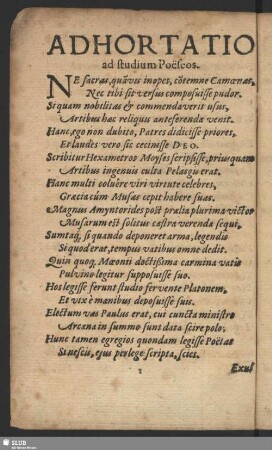 ADHORTATIO
ad studium Poëseos.
NE sacras, quãvis inopes, cõtemne Camœnas,
Nec tibi sit versus composuisse pudor.
Si quam nobilitas & commendaverit usus,
Artibus hæc reliquis anteferenda venit.
Hanc, ego non dubito, Patres didicisse priores,
Et laudes vero sic cecinisse DEO.
Scribitur Hexametros Moyses scripsisse, prius quam
Artibus ingenuis culta Pelasgu erat.
Hanc multi coluêre viri virtute celebres,
Græcia cùm Musas cepit habere suas.
Magnus Amyntorides post prælia plurima victor
Musarum est solitus castra verenda sequi.
Sumtaq́, si quando deponeret arma, legendis
Si quod erat, tempus vatibus omne dedit.
Quin quoq́ Mæonii doctißima carmina vatis
Pulvino legitur supposuisse suo.
Hos legisse ferunt studio fervente Platonem,
Et vix è manibus deposuisse suis.
Electum vas Paulus erat, cui cuncta ministro
Arcana in summo sunt data scire polo;
Hunc tamen egregios quondam legisse Poëtas
Si nescis, ejus perlege scripta, scies.
Exul
SLUB